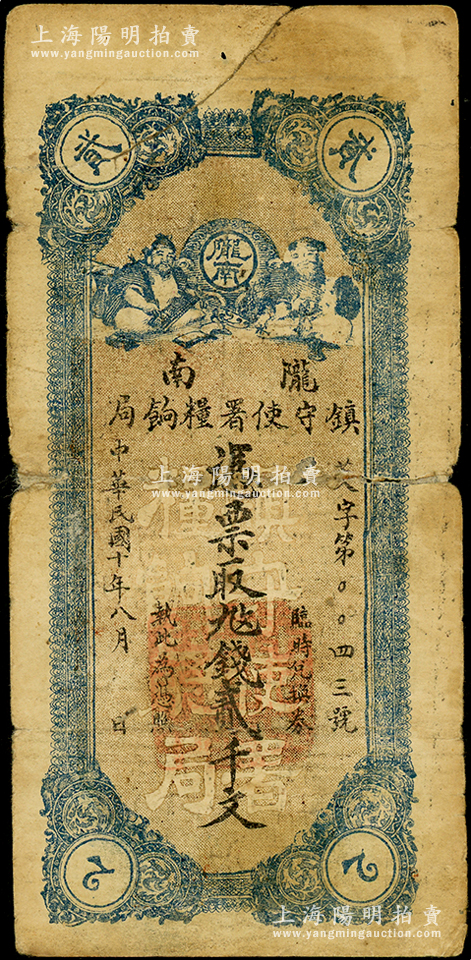 上海陽明拍賣
www.yangmingauction.com
貳
貳
隴南
隴南
鎮守使署糧餉局
字第〇〇四三號
臨時兌換券
憑票取兌錢貳千文
執此為憑照
中華民國十年八月 日
上海陽明拍賣
www.yangmingauction.com
鎮守使署
糧餉局
上海陽明拍賣
www.yangmingauction.com